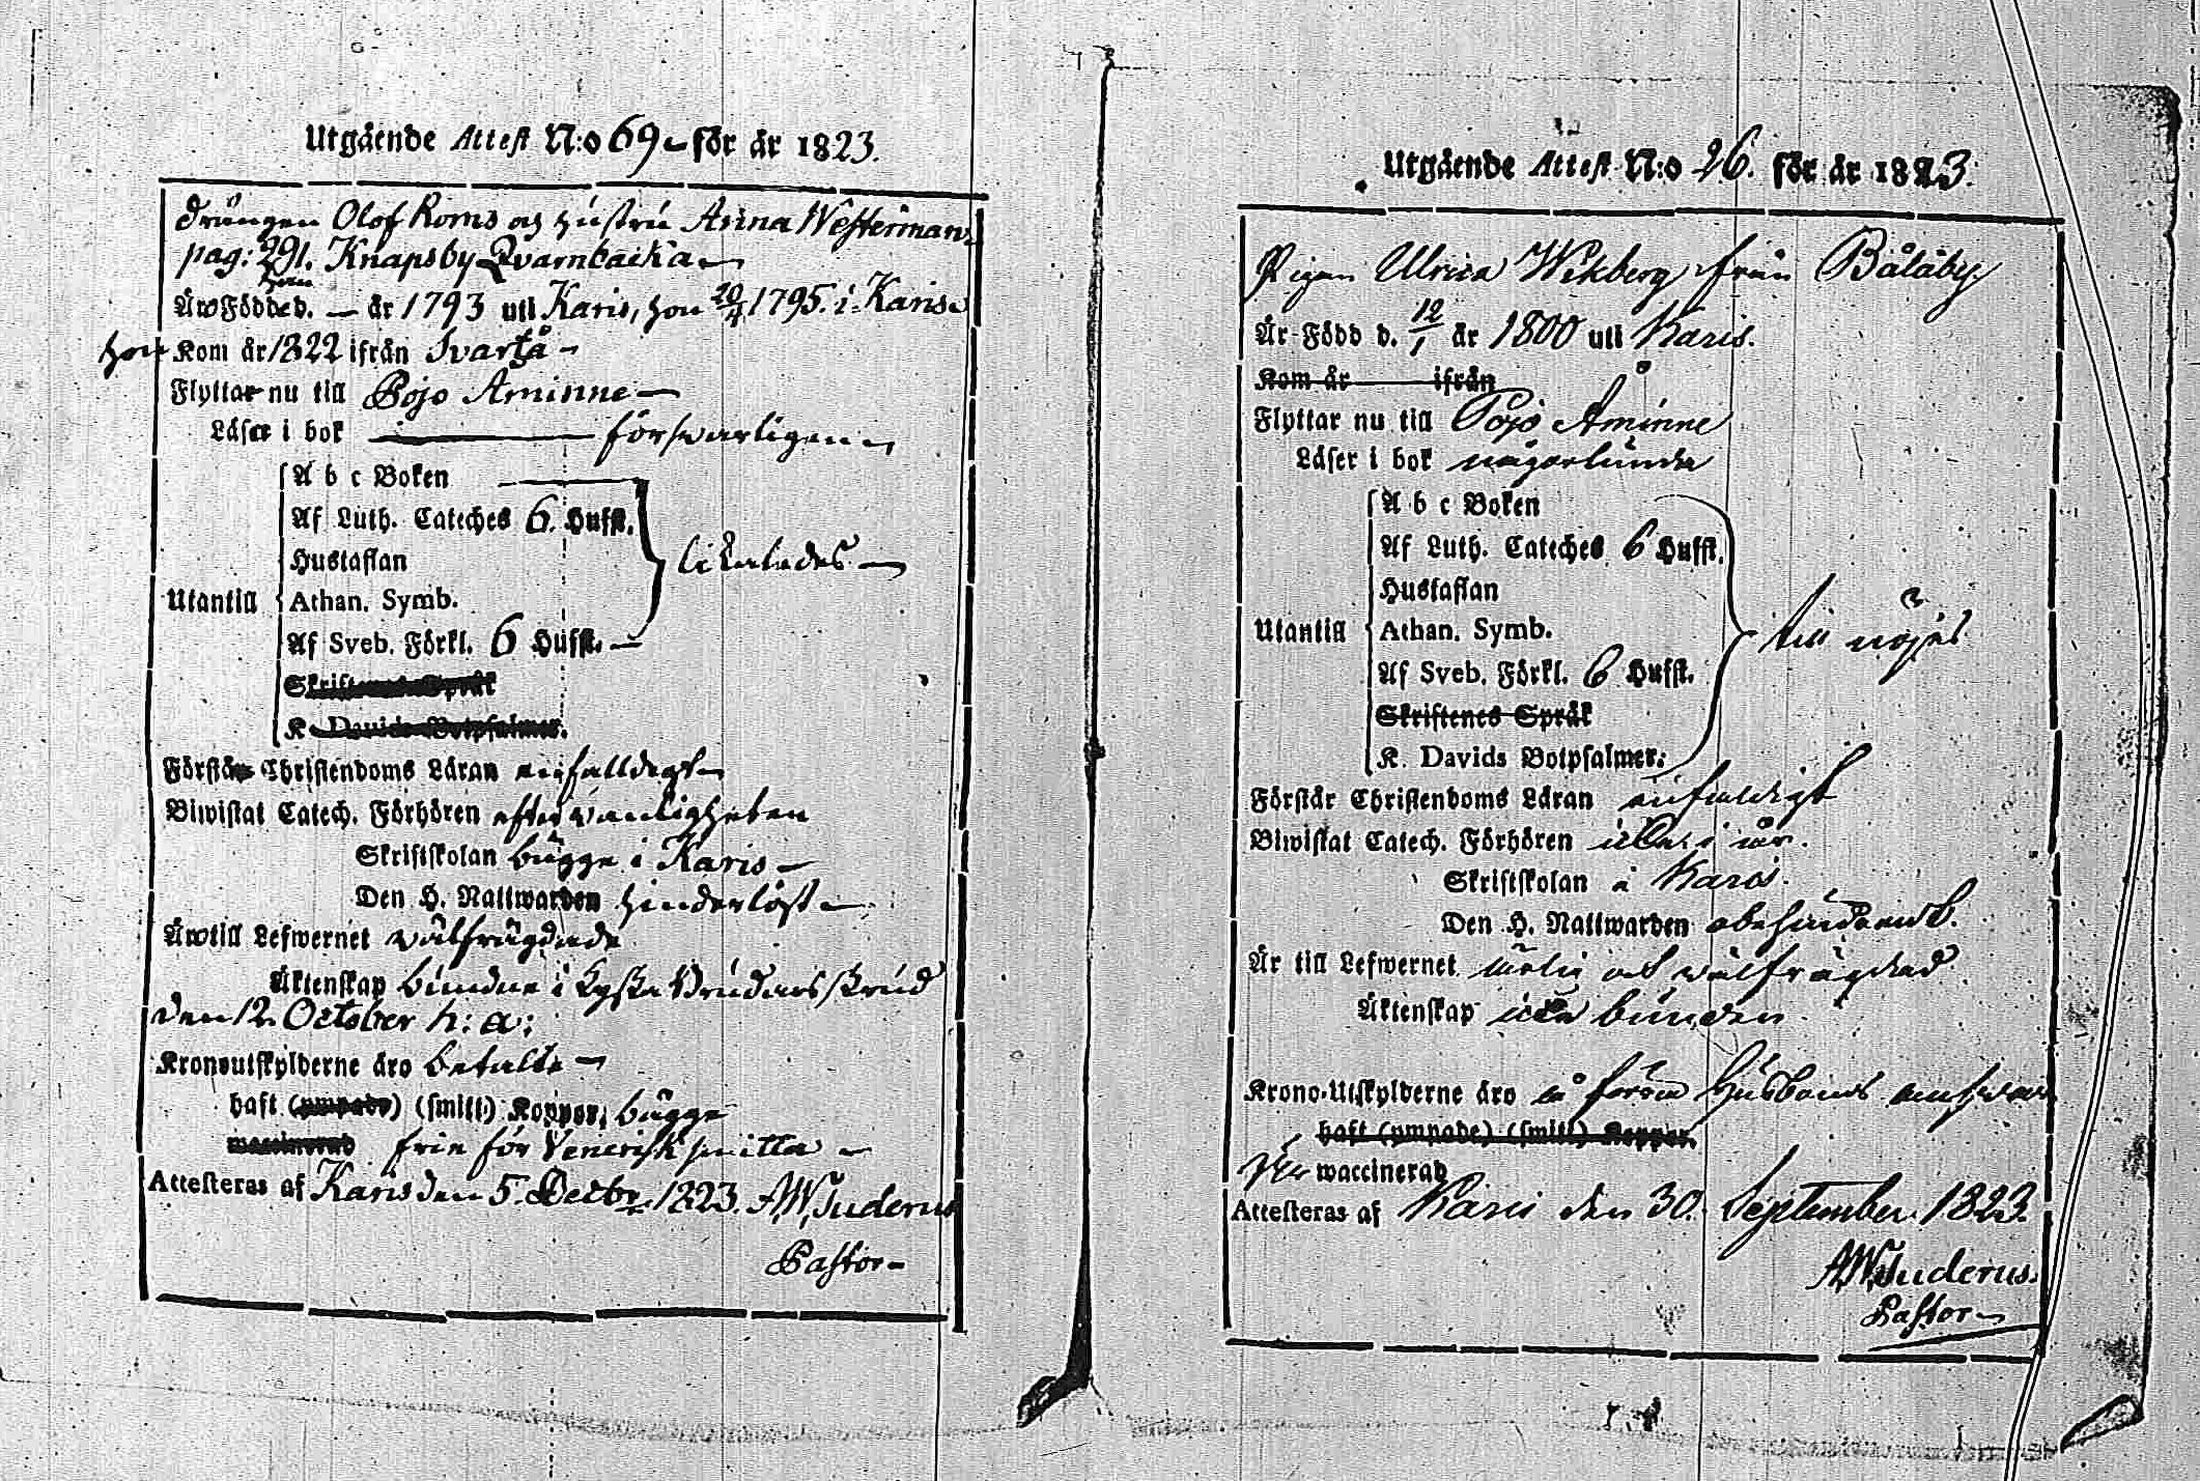 Utgående Attest N:o 69 för år 1823.
Drängen Olof Roms och hustru Anna Westerman
pag: 291. Knapsby Qvarnbacka
han
Äro Födde d. — år 1793 uti Karis, hon 20/4 1795. i Karis
hon Kom år 1822 ifrån Svartå
Flyttar nu till Pojo Åminne
Läser i bok försvarligen
A b c Boken
Af Luth. Cateches 6. Hufst.
Hustaflan
likaledes
Utantill
Athan. Symb.
Af Sveb. Förkl. 6 Hufst.
Skriftenes Språk
K. Davids Botpsalmer.
Förstår Christendoms Läran enfalldigt
Biwistat Catech. Förhören efter vanligheten
Skriftskolan bägge i Karis
Den H. Nattwarden hinderlöst
Äro till Lefwernet välfrägdade
Äktenskap bundne i Kyska Brudars skrud
den 12 October h: a:
Kronoutskylderne äro betalte
haft (ympade) (smitt.) Koppor, bägge
waccinerad frie för Venerisk smitta
Attesteras af Karis den 5. Decbr 1823. A W Tuderus
Pastor
Utgående Attest N:o 26. för år 1823.
Pigan Ulrica Wekberg från Bålaby
Är Född d. 12/1 år 1800 uti Karis.
Kom år ifrån
Flyttar nu till Pojo Åminne
Läser i bok någorlunda
A b c Boken
Af Luth. Cateches 6 Hufst.
Hustaflan
Utantill
Athan. Symb.
till nöjes
Af Sveb. Förkl. 6 Hufst.
Skriftenes Språk
K. Davids Botpsalmer.
Förstår Christendoms Läran enfaldigt
Biwistat Catech. Förhören icke i år.
Skriftskolan i Karis.
Den H. Nattwarden obehindradt.
Är till Lefwernet ärlig och välfrägdad
Äktenskap icke bunden
Krono-Utskylderne äro på förra Husbonds answar
haft (ympade) (smitt.) Koppor.
Är waccinerad
Attesteras af Karis den 30. September 1823.
A W Tuderus.
Pastor